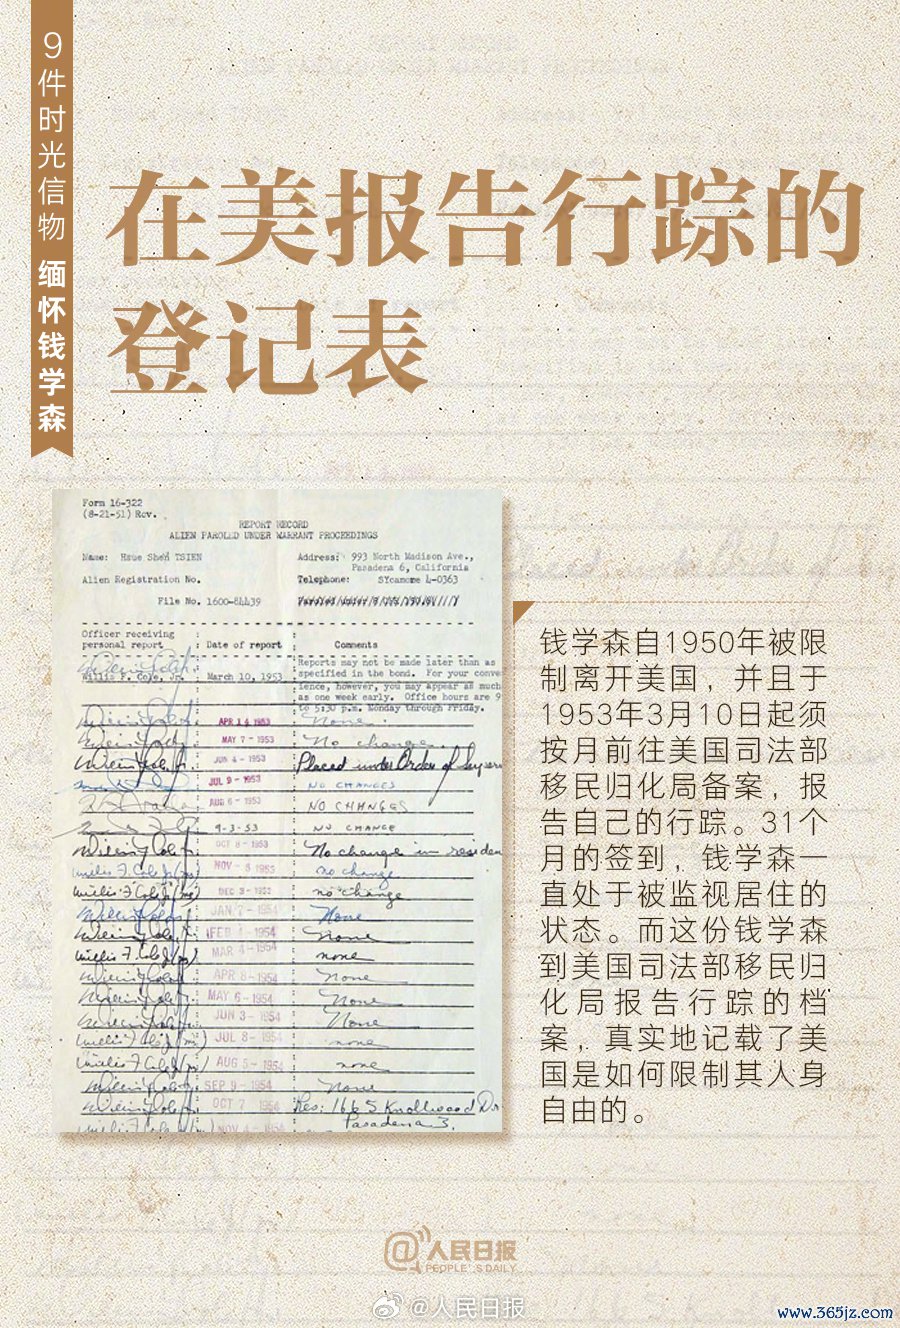 9件时光信物 缅怀钱学森
在美报告行踪的
登记表
Form 16-322
(8-21-51) Rev.
REPORT RECORD
ALIEN PAROLED UNDER WARRANT PROCEEDINGS
Name: Hsue Shen TSIEN
Address: 993 North Madison Ave.,
Pasadena 6, California
Alien Registration No.
Telephone: SYcamore 4-0363
File No. 1600-84439
Officer receiving
personal report
Date of report
Comments
Reports may not be made later than as
specified in the bond. For your conve
ience, however, you may appear as much
as one week early. Office hours are 9
to 5:30 p.m. Monday through Friday.
Willis F. Cole, Jr. March 10, 1953
APR 14 1953 None
MAY 7 - 1953 No change.
JUN 4 - 1953 Placed under Order of Superv
JUL 9 - 1953 NO CHANGES
AUG 6 - 1953 NO CHANGES
9-3-53 NO CHANGE
OCT 8 - 1953 No change in residen
NOV - 5 1953 no change
Willis F. Cole Jr DEC 3 - 1953 no change
JAN 7 - 1954 None
FEB 4 - 1954 None
Willis F. Cole Jr MAR 4 - 1954 none
APR 8 - 1954 None
MAY 6 - 1954 None
JUN 3 - 1954 None
JUL 8 - 1954 none
Willis F. Cole Jr AUG 5 - 1954 none
SEP 9 - 1954 None
OCT 7 1954 Res: 166 S. Knollwood Dr
Pasadena 3.
NOV 4 - 1954
钱学森自1950年被限
制离开美国，并且于
1953年3月10日起须
按月前往美国司法部
移民归化局备案，报
告自己的行踪。31个
月的签到，钱学森一
直处于被监视居住的
状态。而这份钱学森
到美国司法部移民归
化局报告行踪的档
案，真实地记载了美
国是如何限制其人身
自由的。
@人民日报
PEOPLE'S DAILY
@人民日报
www.365jz.com